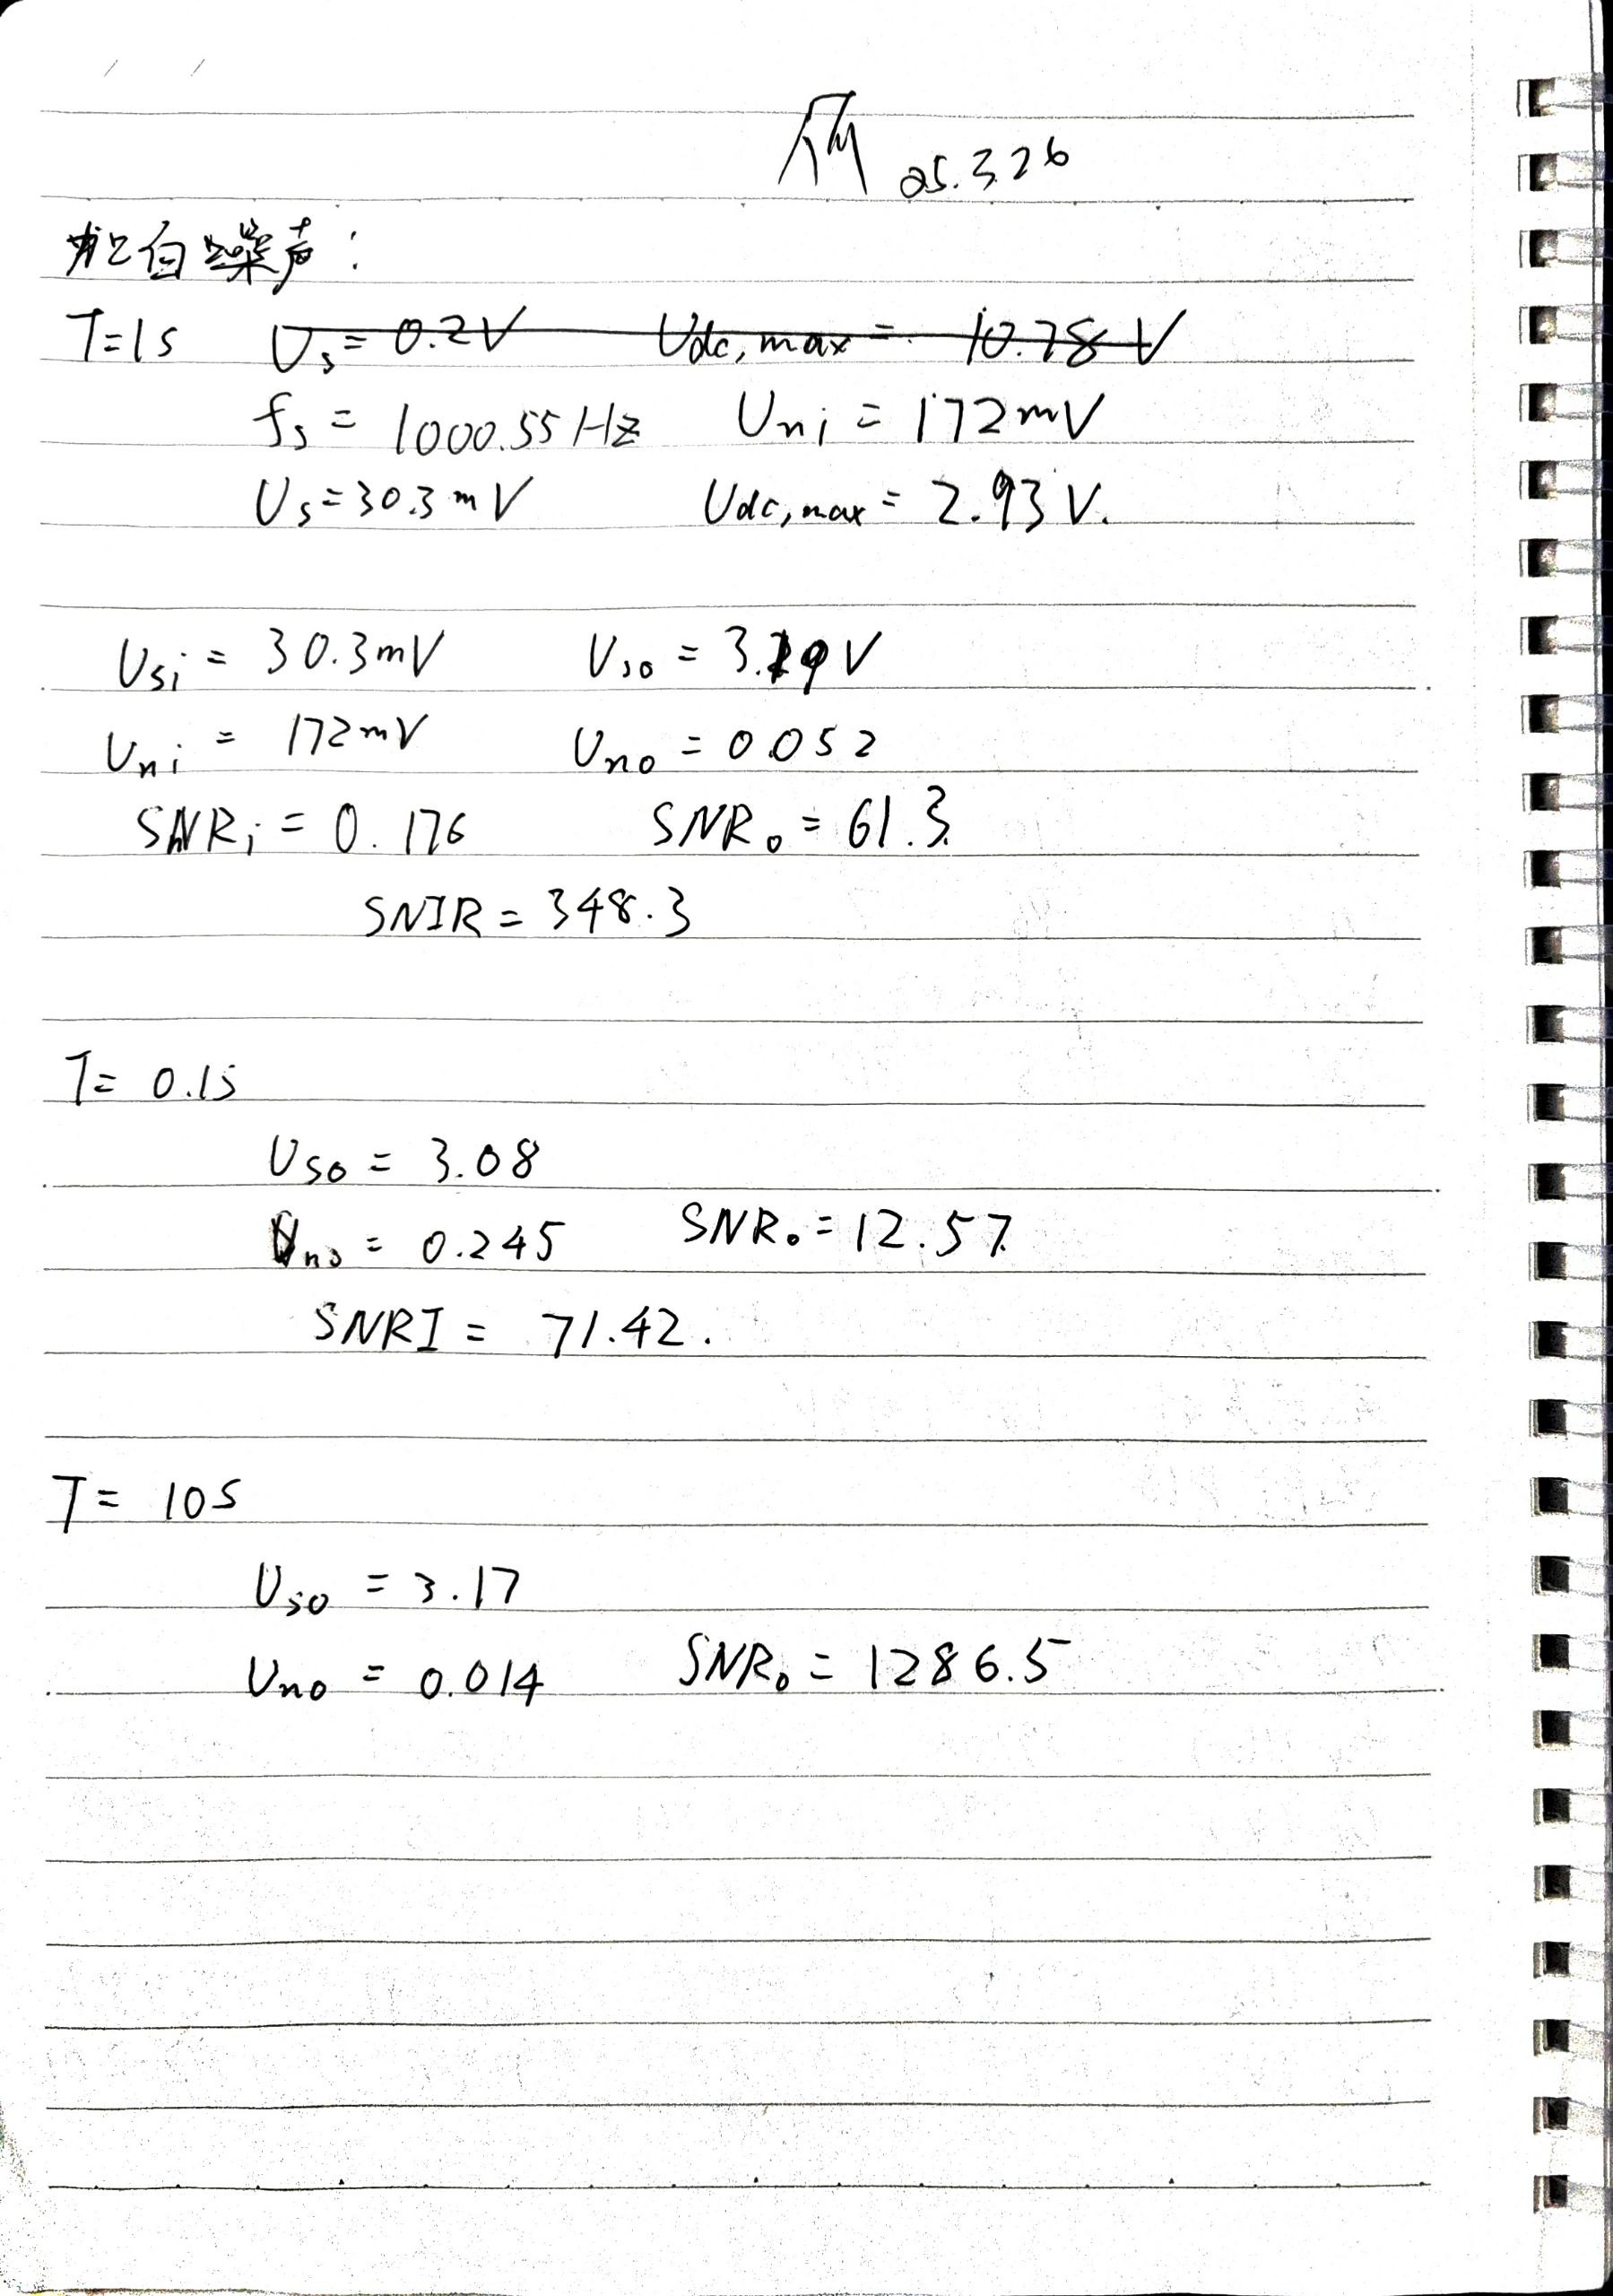 25.3.26
加白噪声:
T=1s U_s=0.2V U_dc,max = 10.78V
f_s = 1000.55Hz U_ni = 172mV
U_s=30.3mV U_dc,max = 2.93V.
U_si = 30.3mV U_so = 3.19V
U_ni = 172mV U_no = 0.052
SNR_i = 0.176 SNR_o = 61.3
SNIR = 348.3
T= 0.1s
U_so = 3.08
U_no = 0.245 SNR_o = 12.57
SNRI = 71.42.
T= 10s
U_so = 3.17
U_no = 0.014 SNR_o = 1286.5